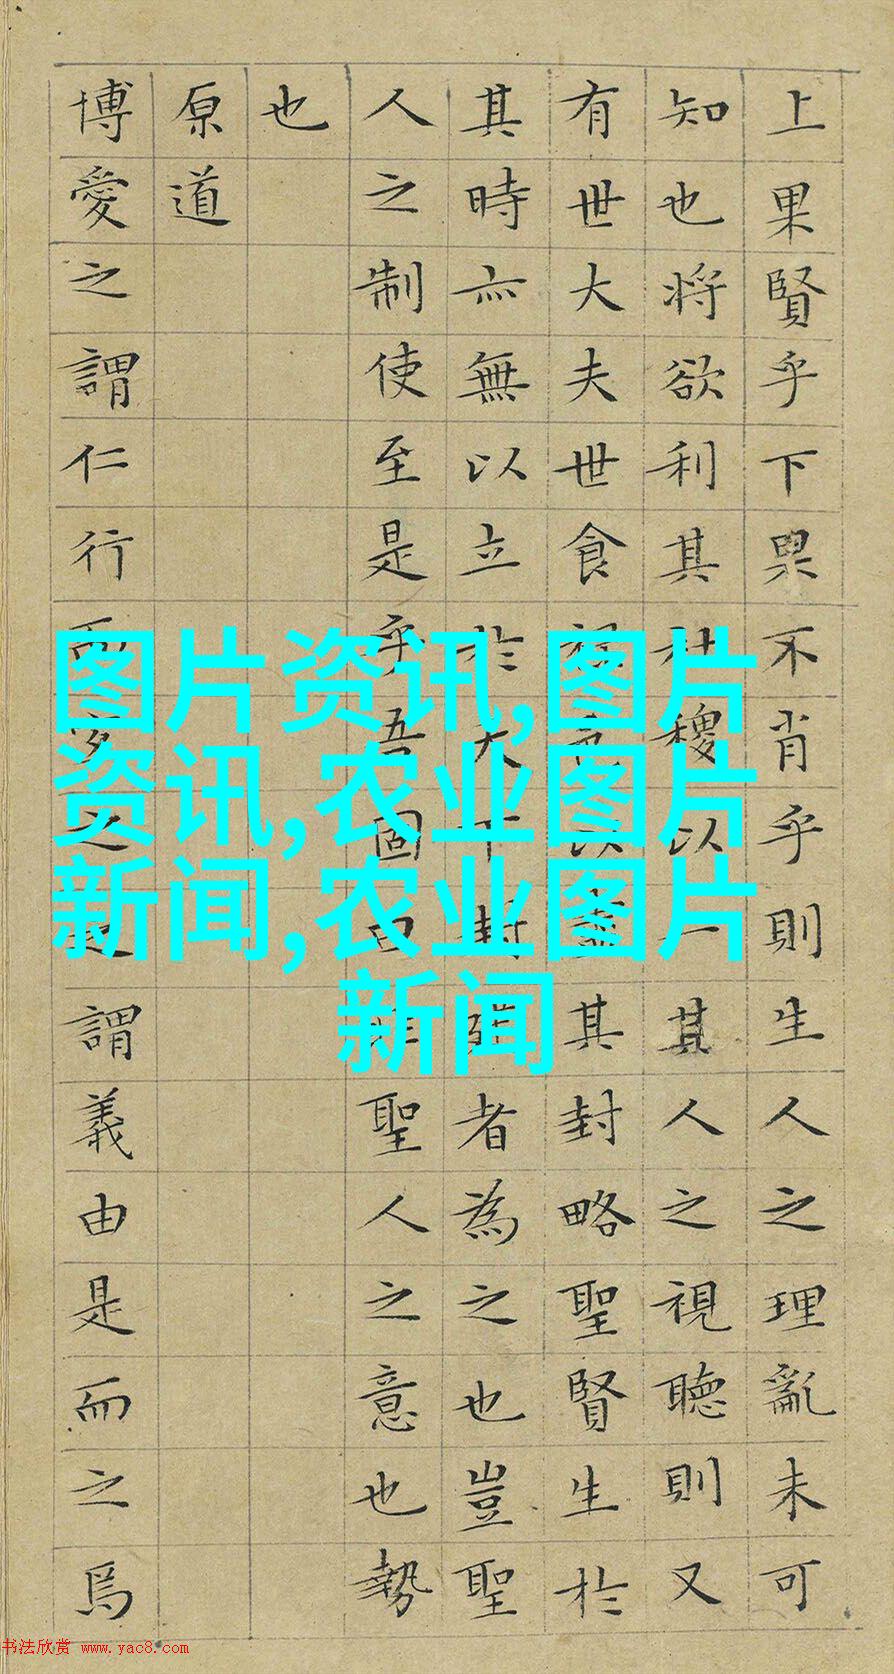 上果賢乎下果不肖乎則生人之理亂未可
知也将欲利其社稷以一其人之視聽則又
有世大夫世食禄邑以盡其封略聖賢生於
其時亦無以立於天下封建者為之也豈聖
人之制使至是乎吾固曰非聖人之意也勢
也
原道
博愛之謂仁行而宜之之謂義由是而之焉
图片资讯,图片
资讯,农业图片
新闻,农业图片
新闻
书法欣赏 www.yac8.com